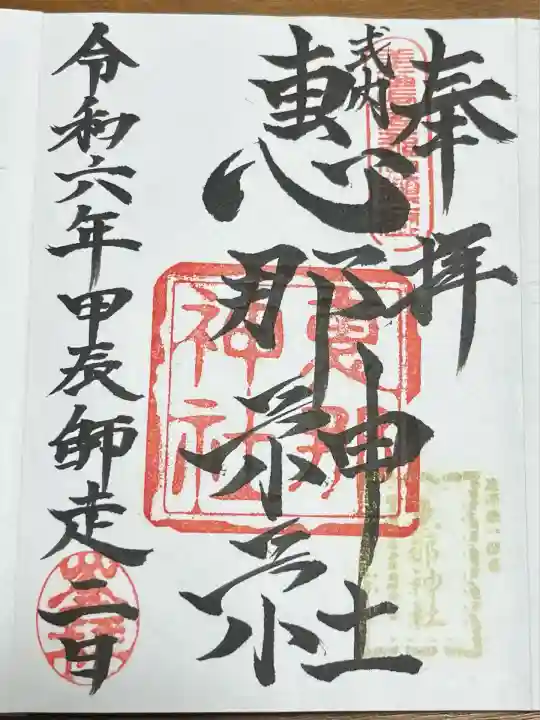 奉拝
式内
惠那神社
惠那
神社
令和六年甲辰師走二日